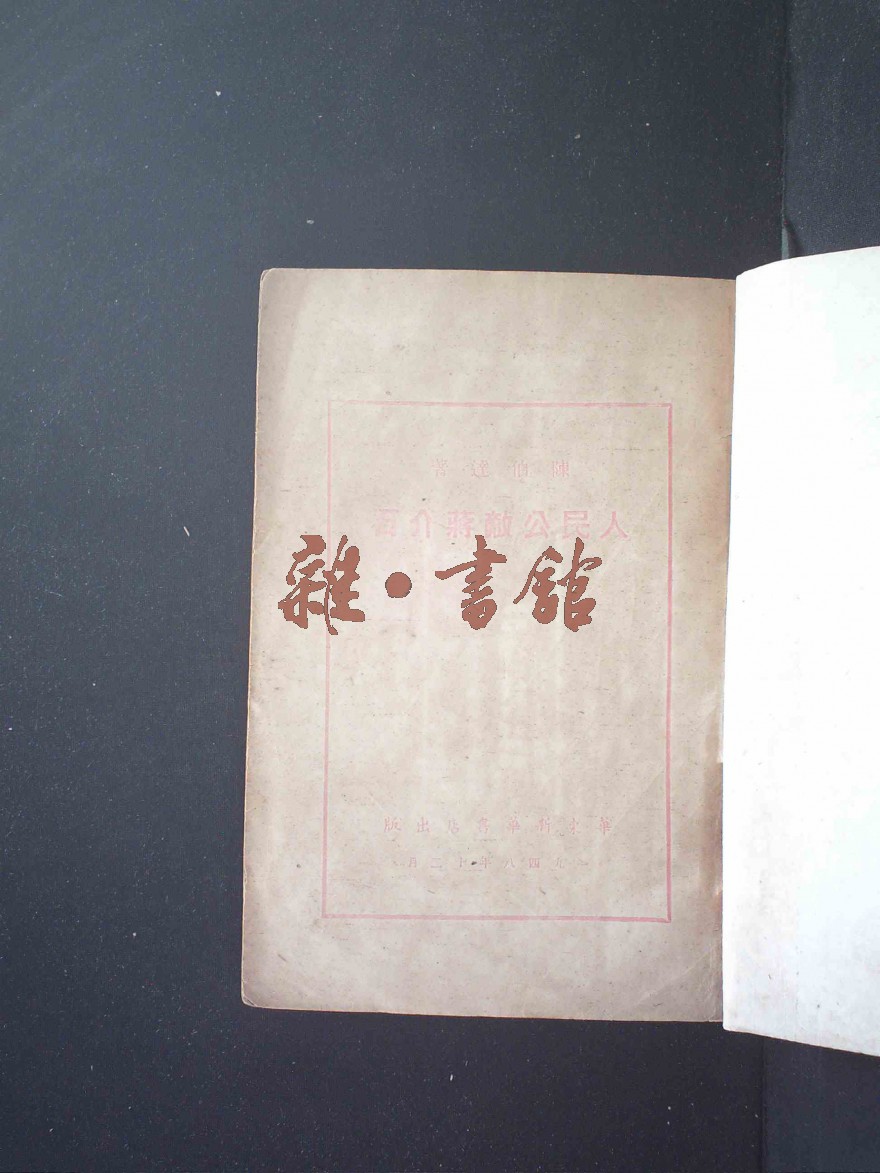 陳伯達著
人民公敵蔣介石
雜·書館
華東新華書店出版
一九四八年十二月